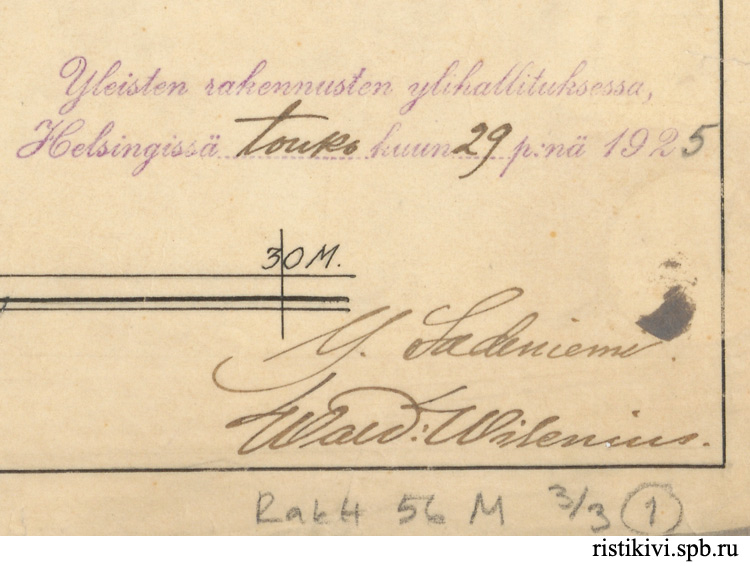 Yleisten rakennusten ylihallituksessa,
Helsingissä touko kuun 29 p:nä 1925
30 M.
Y. Sadeniemi.
Wald: Wilenius.
RakH 56 M 3/3 1
ristikivi.spb.ru